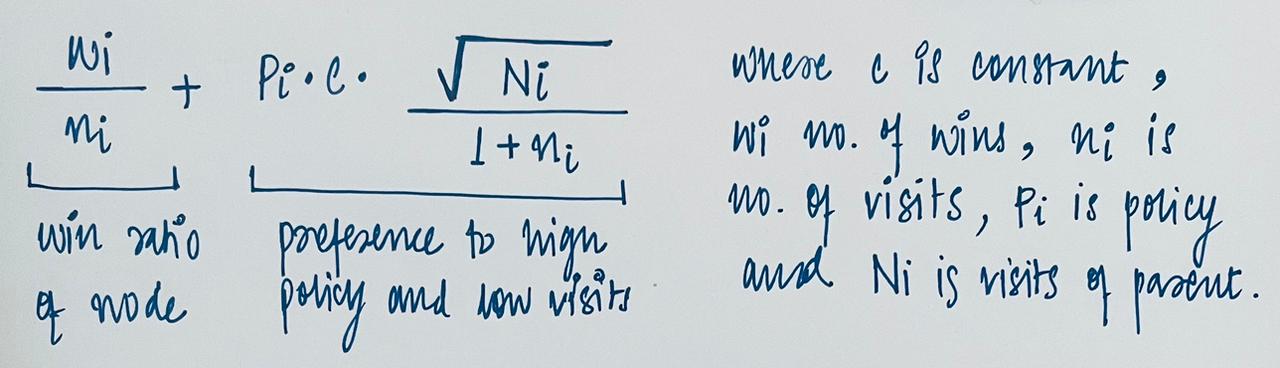 wi/ni + Pi · C · √Ni/1+ni
win ratio
of node
preference to high
policy and low visits
where c is constant,
wi no. of wins, ni is
no. of visits, Pi is policy
and Ni is visits of parent.